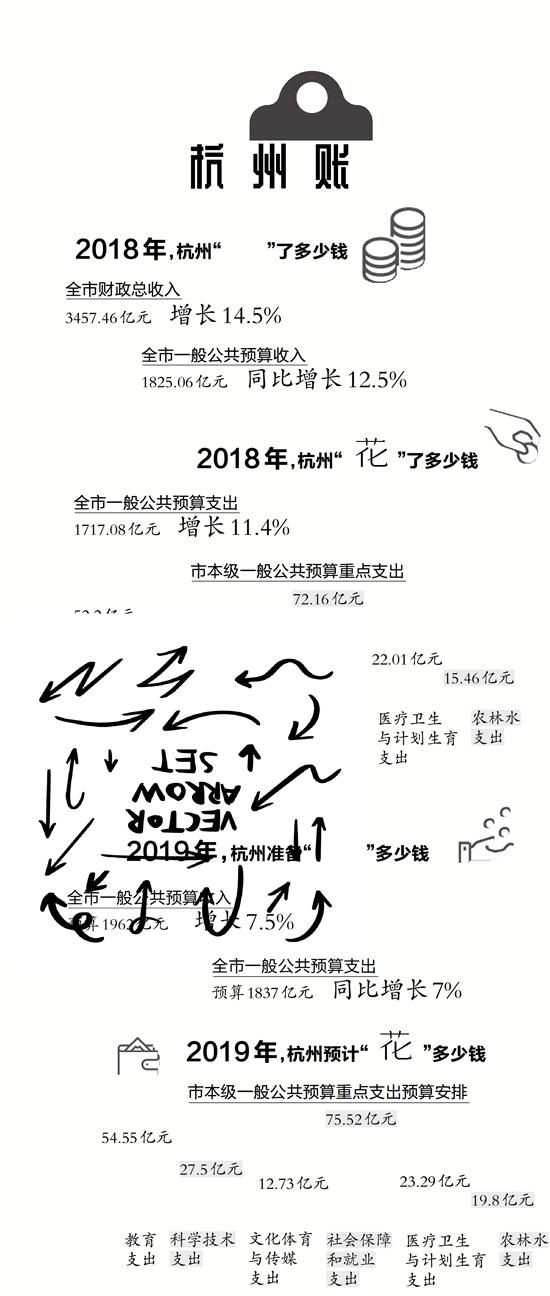 杭州账
2018年,杭州“ ”了多少钱
全市财政总收入
3457.46亿元 增长14.5%
全市一般公共预算收入
1825.06亿元 同比增长12.5%
2018年,杭州“花”了多少钱
全市一般公共预算支出
1717.08亿元 增长11.4%
市本级一般公共预算重点支出
72.16亿元
22.01亿元
15.46亿元
医疗卫生 农林水
与计划生育 支出
支出
SET
ARROW
VECTOR
2019年,杭州准备“ ”多少钱
全市一般公共预算收入
预算1962亿元 增长7.5%
全市一般公共预算支出
预算1837亿元 同比增长7%
2019年,杭州预计“花”多少钱
市本级一般公共预算重点支出预算安排
75.52亿元
54.55亿元
27.5亿元
12.73亿元 23.29亿元
19.8亿元
教育 科学技术 文化体育 社会保障 医疗卫生 农林水
支出 支出 与传媒 和就业 与计划生育 支出
支出 支出 支出